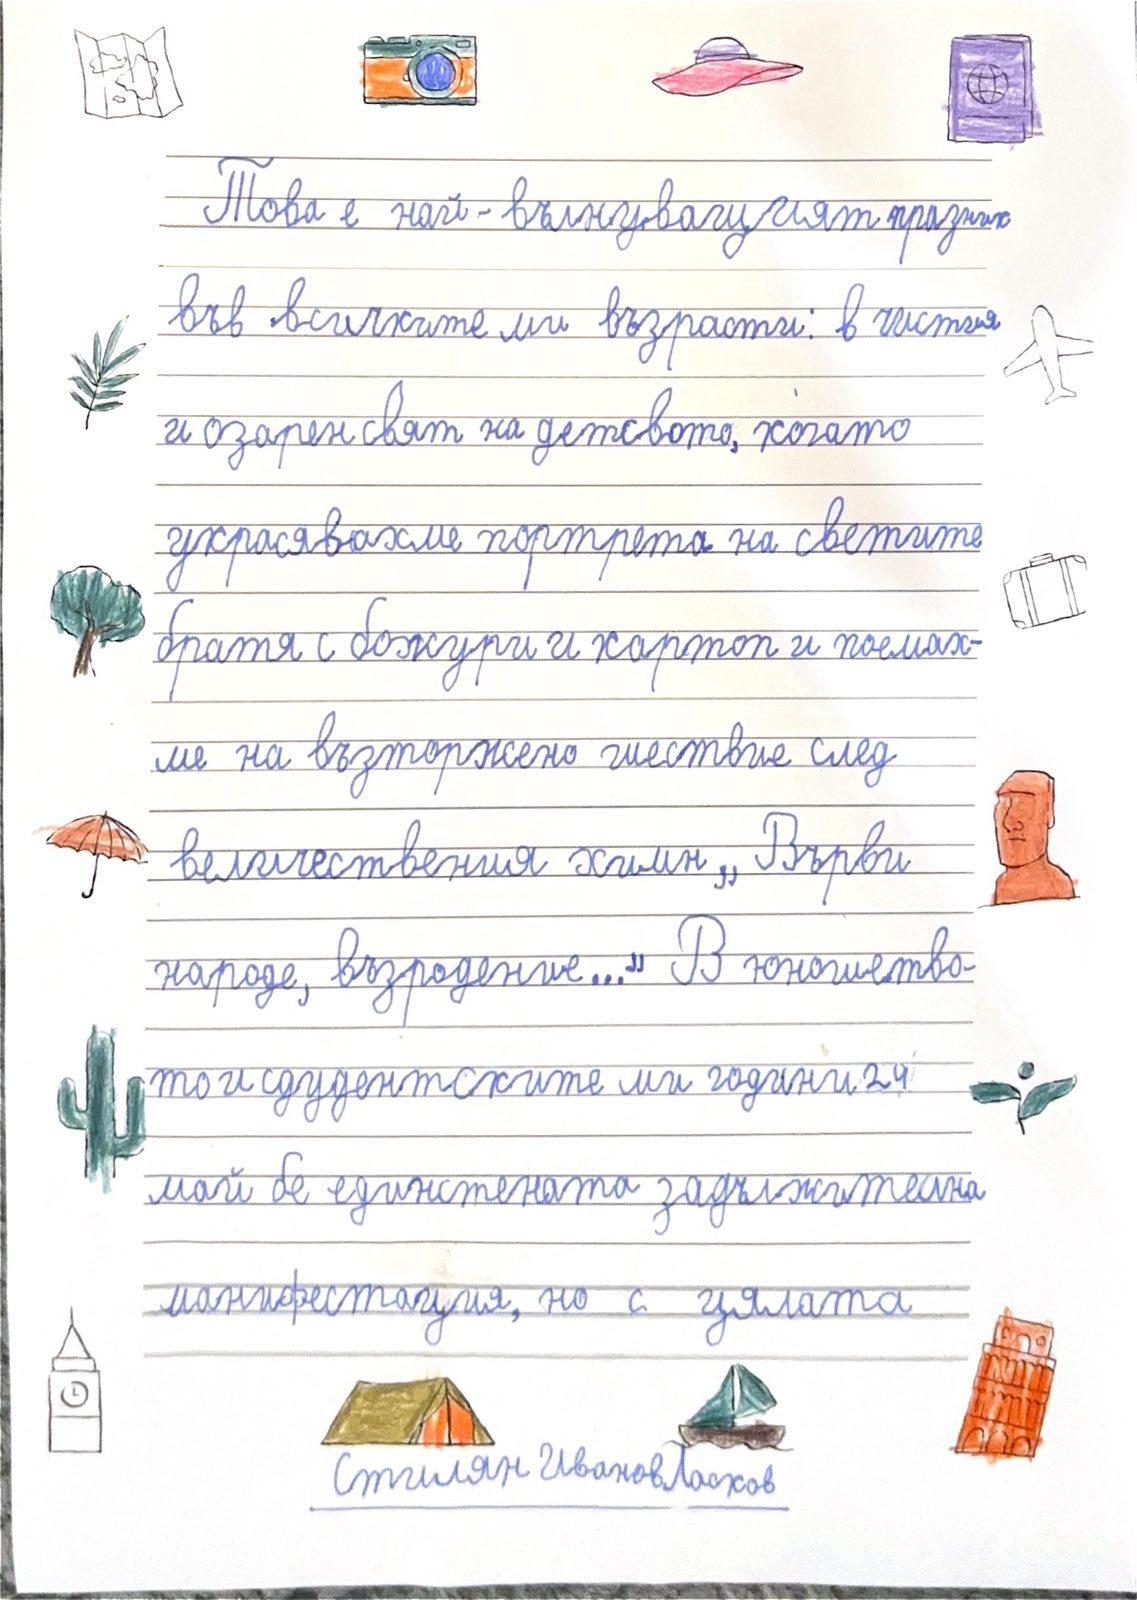 Това е най-вълнуващият празник
във всичките ми възрасти: в чистия
и озарен свят на детсвото, когато
украсявахме портрета на светите
братя с божури и картоп и поемах-
ме на възторжено шествие след
величествения химн „Върви
народе, възродение..." В юношетво-
то и сдудентските ми години 24
май бе единстената задължителна
манифестация, но с цялата
Стилян Иванов Ласков